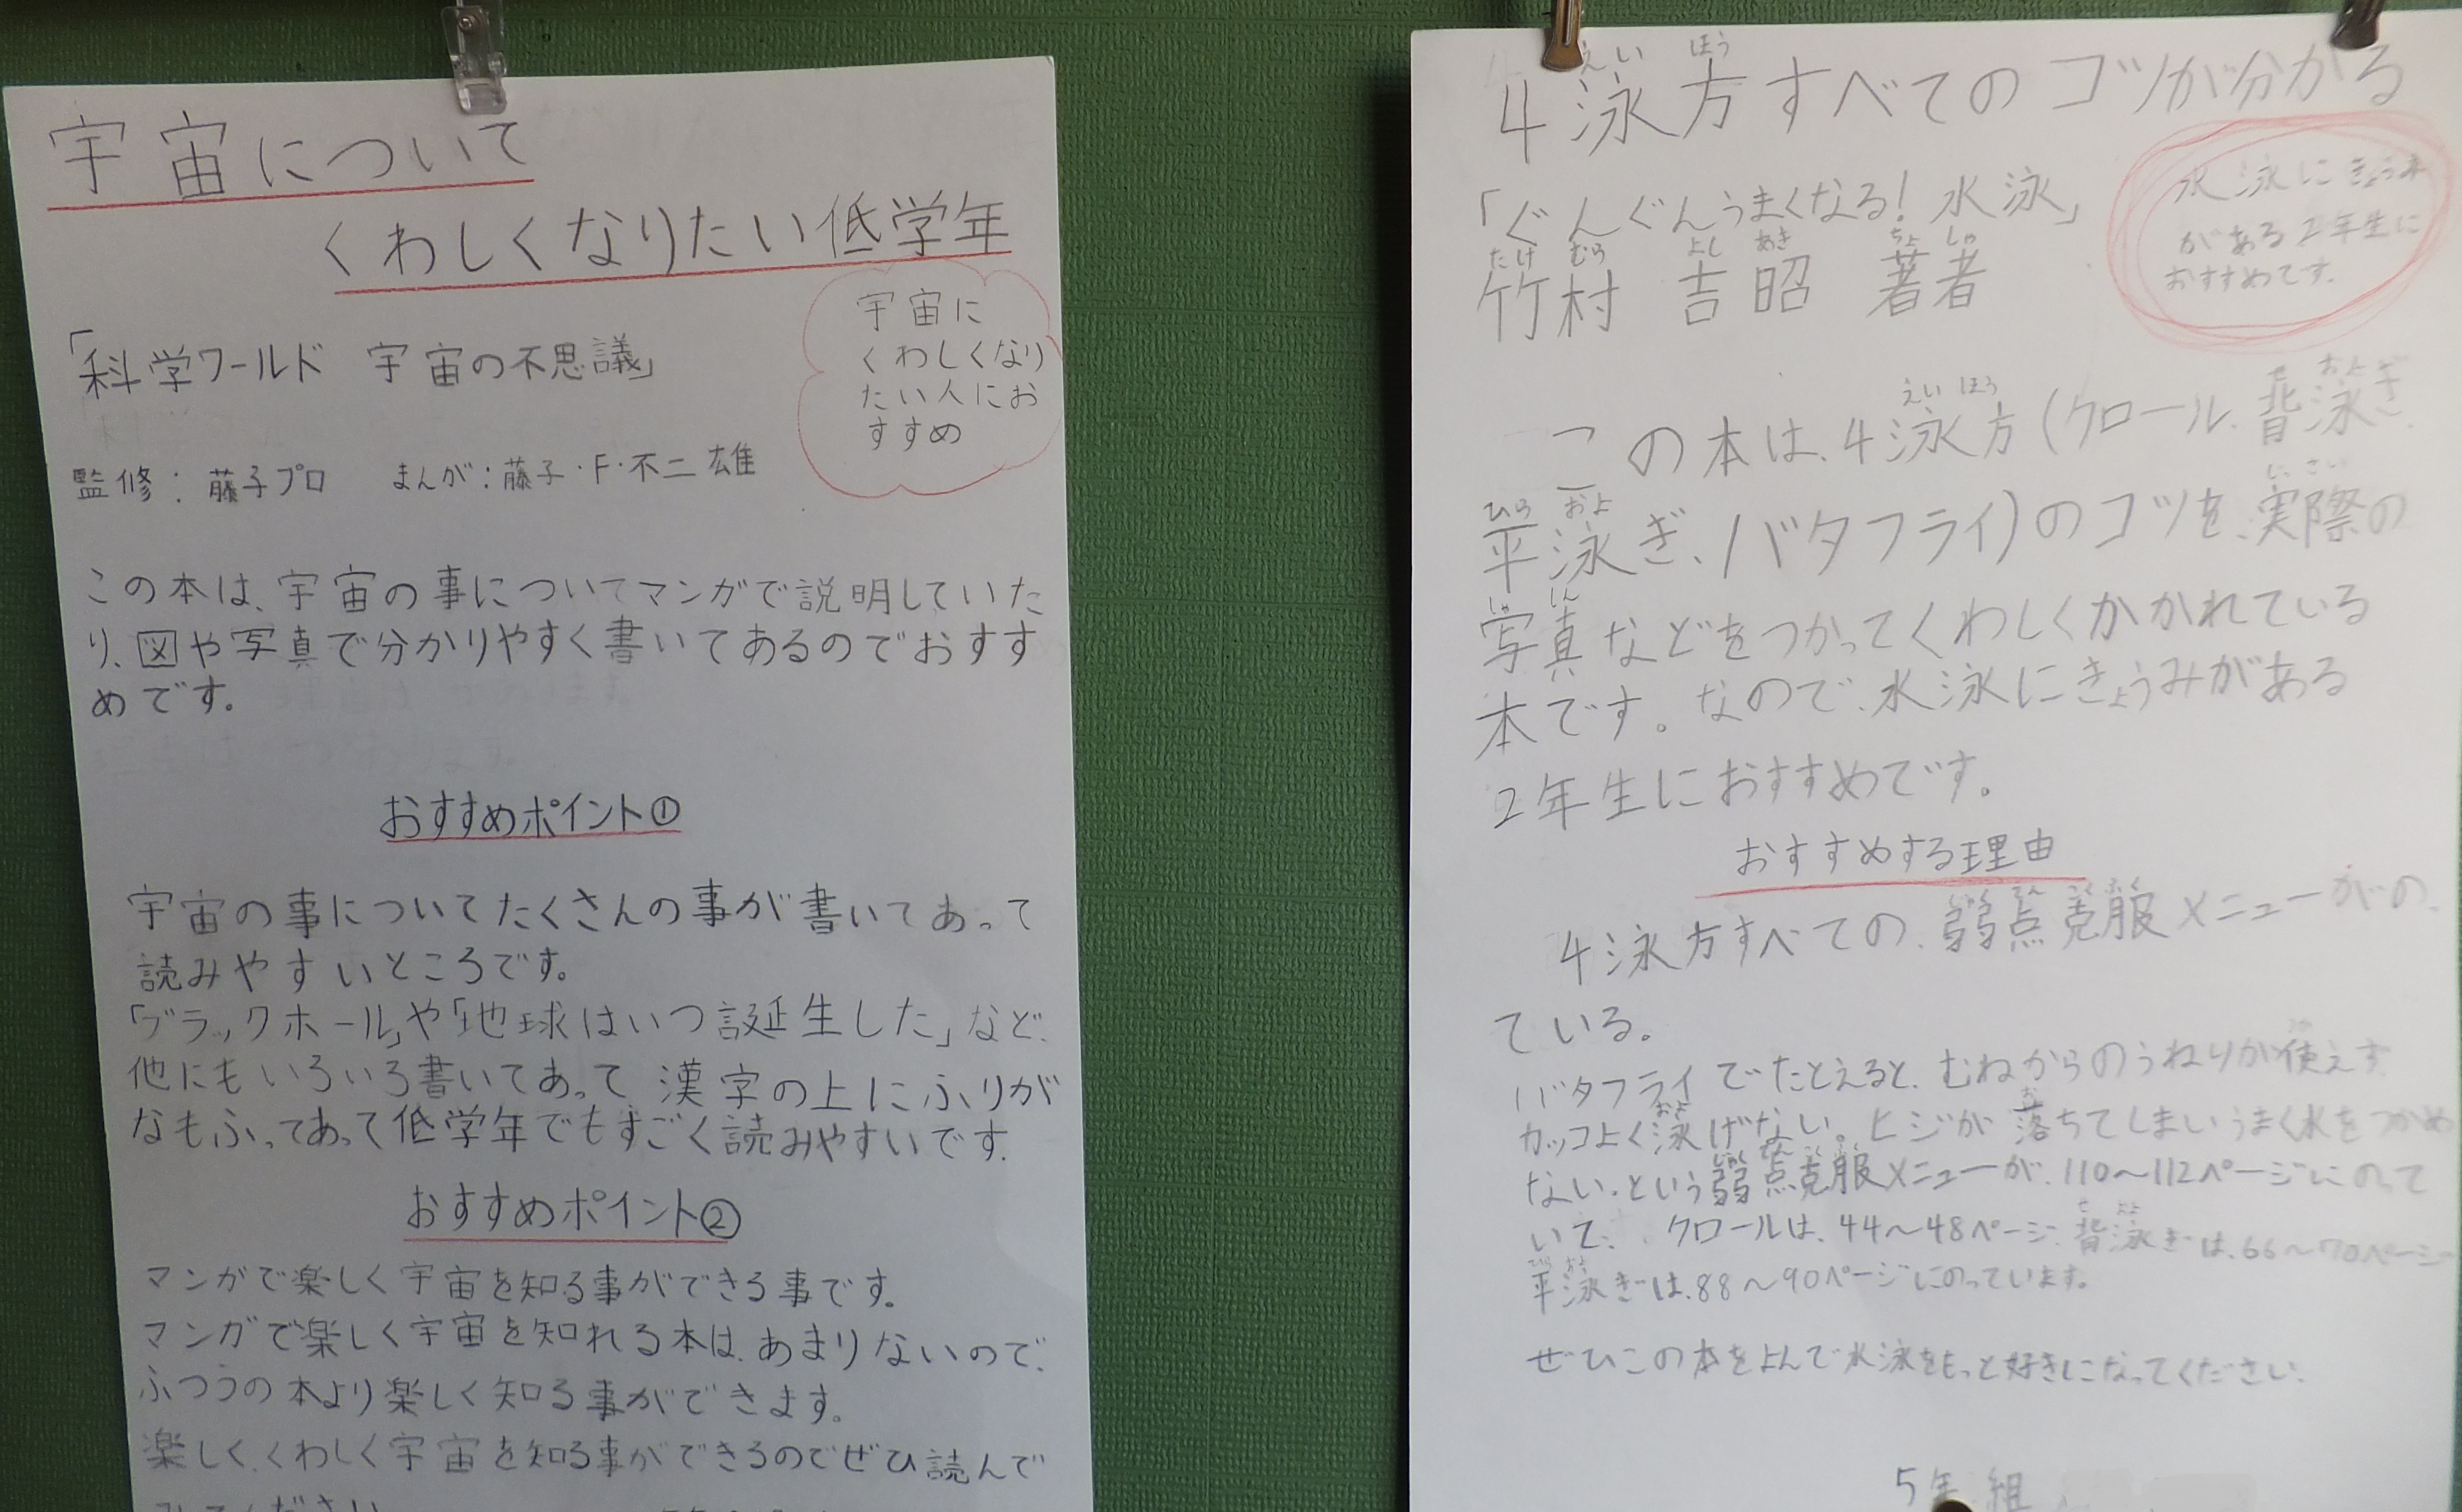 宇宙について
くわしくなりたい低学年
「科学ワールド 宇宙の不思議」
宇宙に
くわしくなり
たい人にお
すすめ
監修：藤子プロ まんが：藤子・F・不二雄
この本は、宇宙の事についてマンガで説明していた
り、図や写真で分かりやすく書いてあるのでおすす
めです。
おすすめポイント①
宇宙の事についてたくさんの事が書いてあって
読みやすいところです。
「ブラックホール」や「地球はいつ誕生した」など、
他にもいろいろ書いてあって漢字の上にふりが
なもふってあって低学年でもすごく読みやすいです。
おすすめポイント②
マンガで楽しく宇宙を知る事ができる事です。
マンガで楽しく宇宙を知れる本は、あまりないので、
ふつうの本より楽しく知る事ができます。
楽しく、くわしく宇宙を知る事ができるのでぜひ読んで
みてください
えい ほう
4泳方すべてのコツが分かる
「ぐんぐんうまくなる！水泳」
たけ むら よし あき ちょ しゃ
竹村 吉昭 著者
水泳にきょうみ
がある2年生に
おすすめです。
えい ほう せ およ
この本は、4泳方（クロール、背泳ぎ、
ひら およ じっ さい
平泳ぎ、バタフライ）のコツを、実際の
しゃ しん
写真などをつかってくわしくかかれている
本です。なので、水泳にきょうみがある
2年生におすすめです。
おすすめする理由
じゃく てん こく ふく
4泳方すべての、弱点克服メニューがの、
ている。
バタフライでたとえると、むねからのうねりが使えず
およ お
カッコよく泳げない。ヒジが落ちてしまいうまく水をつかめ
じゃく てん こく ふく
ない。という弱点克服メニューが、110〜112ページにのって
せ およ
いて、 クロールは、44〜48ページ、背泳ぎは、66〜70ページ
ひら およ
平泳ぎは、88〜90ページにのっています。
ぜひこの本をよんで水泳をもっと好きになってください。
5年 組